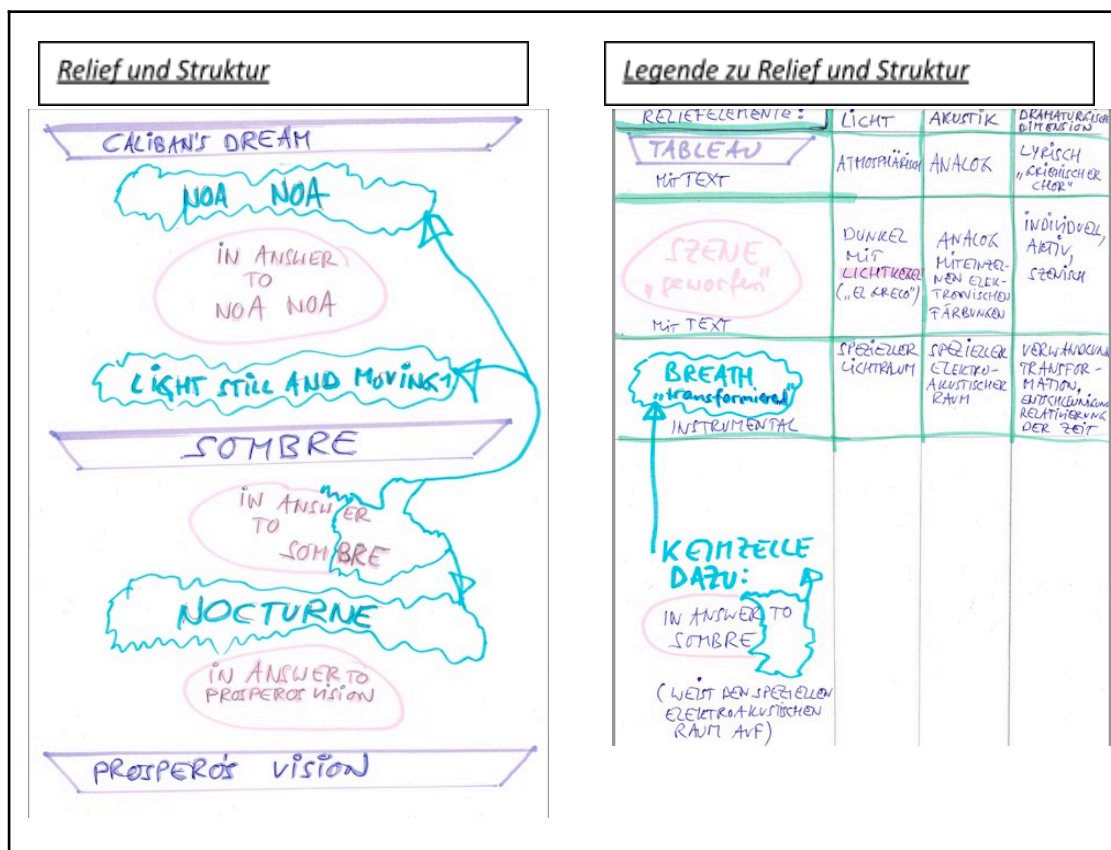 Relief und Struktur
CALIBAN'S DREAM
NOA NOA
IN ANSWER
TO
NOA NOA
LIGHT STILL AND MOVING 1
SOMBRE
IN ANSWER
TO
SOMBRE
NOCTURNE
IN ANSWER TO
PROSPEROS VISION
PROSPERO'S VISION
Legende zu Relief und Struktur
RELIEFELEMENTE:
LICHT
AKUSTIK
DRAMATURGISCHE
DIMENSION
TABLEAU
MIT TEXT
ATMOSPHÄRISCH
ANALOG
LYRISCH
„GRIECHISCHER
CHOR"
SZENE
„geworfen"
MIT TEXT
DUNKEL
MIT
LICHTKEGEL
(„EL GRECO")
ANALOG
MIT EINZEL-
NEN ELEK-
TRONISCHEN
FÄRBUNGEN
INDIVIDUELL,
AKTIV,
SZENISCH
BREATH
„transformierend"
INSTRUMENTAL
SPEZIELLER
LICHTRAUM
SPEZIELLER
ELEKTRO-
AKUSTISCHER
RAUM
VERWANDLUNG
TRANSFOR-
MATION,
ENTSCHLEUNIGUNG
RELATIVIERUNG
DER ZEIT
KEIMZELLE
DAZU:
IN ANSWER TO
SOMBRE
(WEIST DEN SPEZIELLEN
ELEKTROAKUSTISCHEN
RAUM AUF)